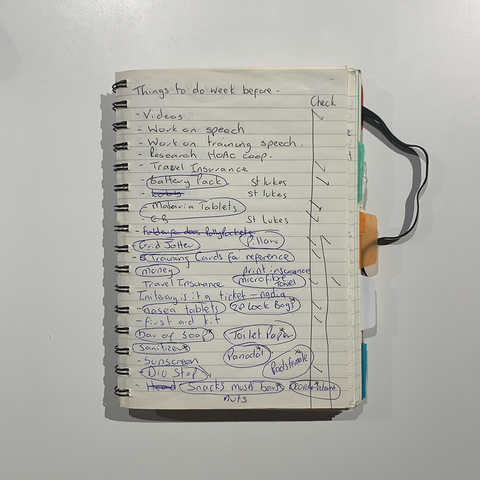 Things to do week before -
Check
- Videos
- Work on speech
- Work on training speech.
- Research HOAC coop.
- Travel Insurance
- Battery Pack St lukes
St lukes
- Malaria Tablets
- C.B St Lukes
- Grid Jotter Pillow
- Training Cards for reference
- Money print insurance
- Travel Insurance microfibre Towel
Initerary is it a ticket -
- nasea tablets ziplock Bags
- First aid kit
Bar of Soap Toilet Paper
Sanitizer Panadol
- Sunscreen Pads female
- Dio Stop
- Snacks musli bars
Nuts